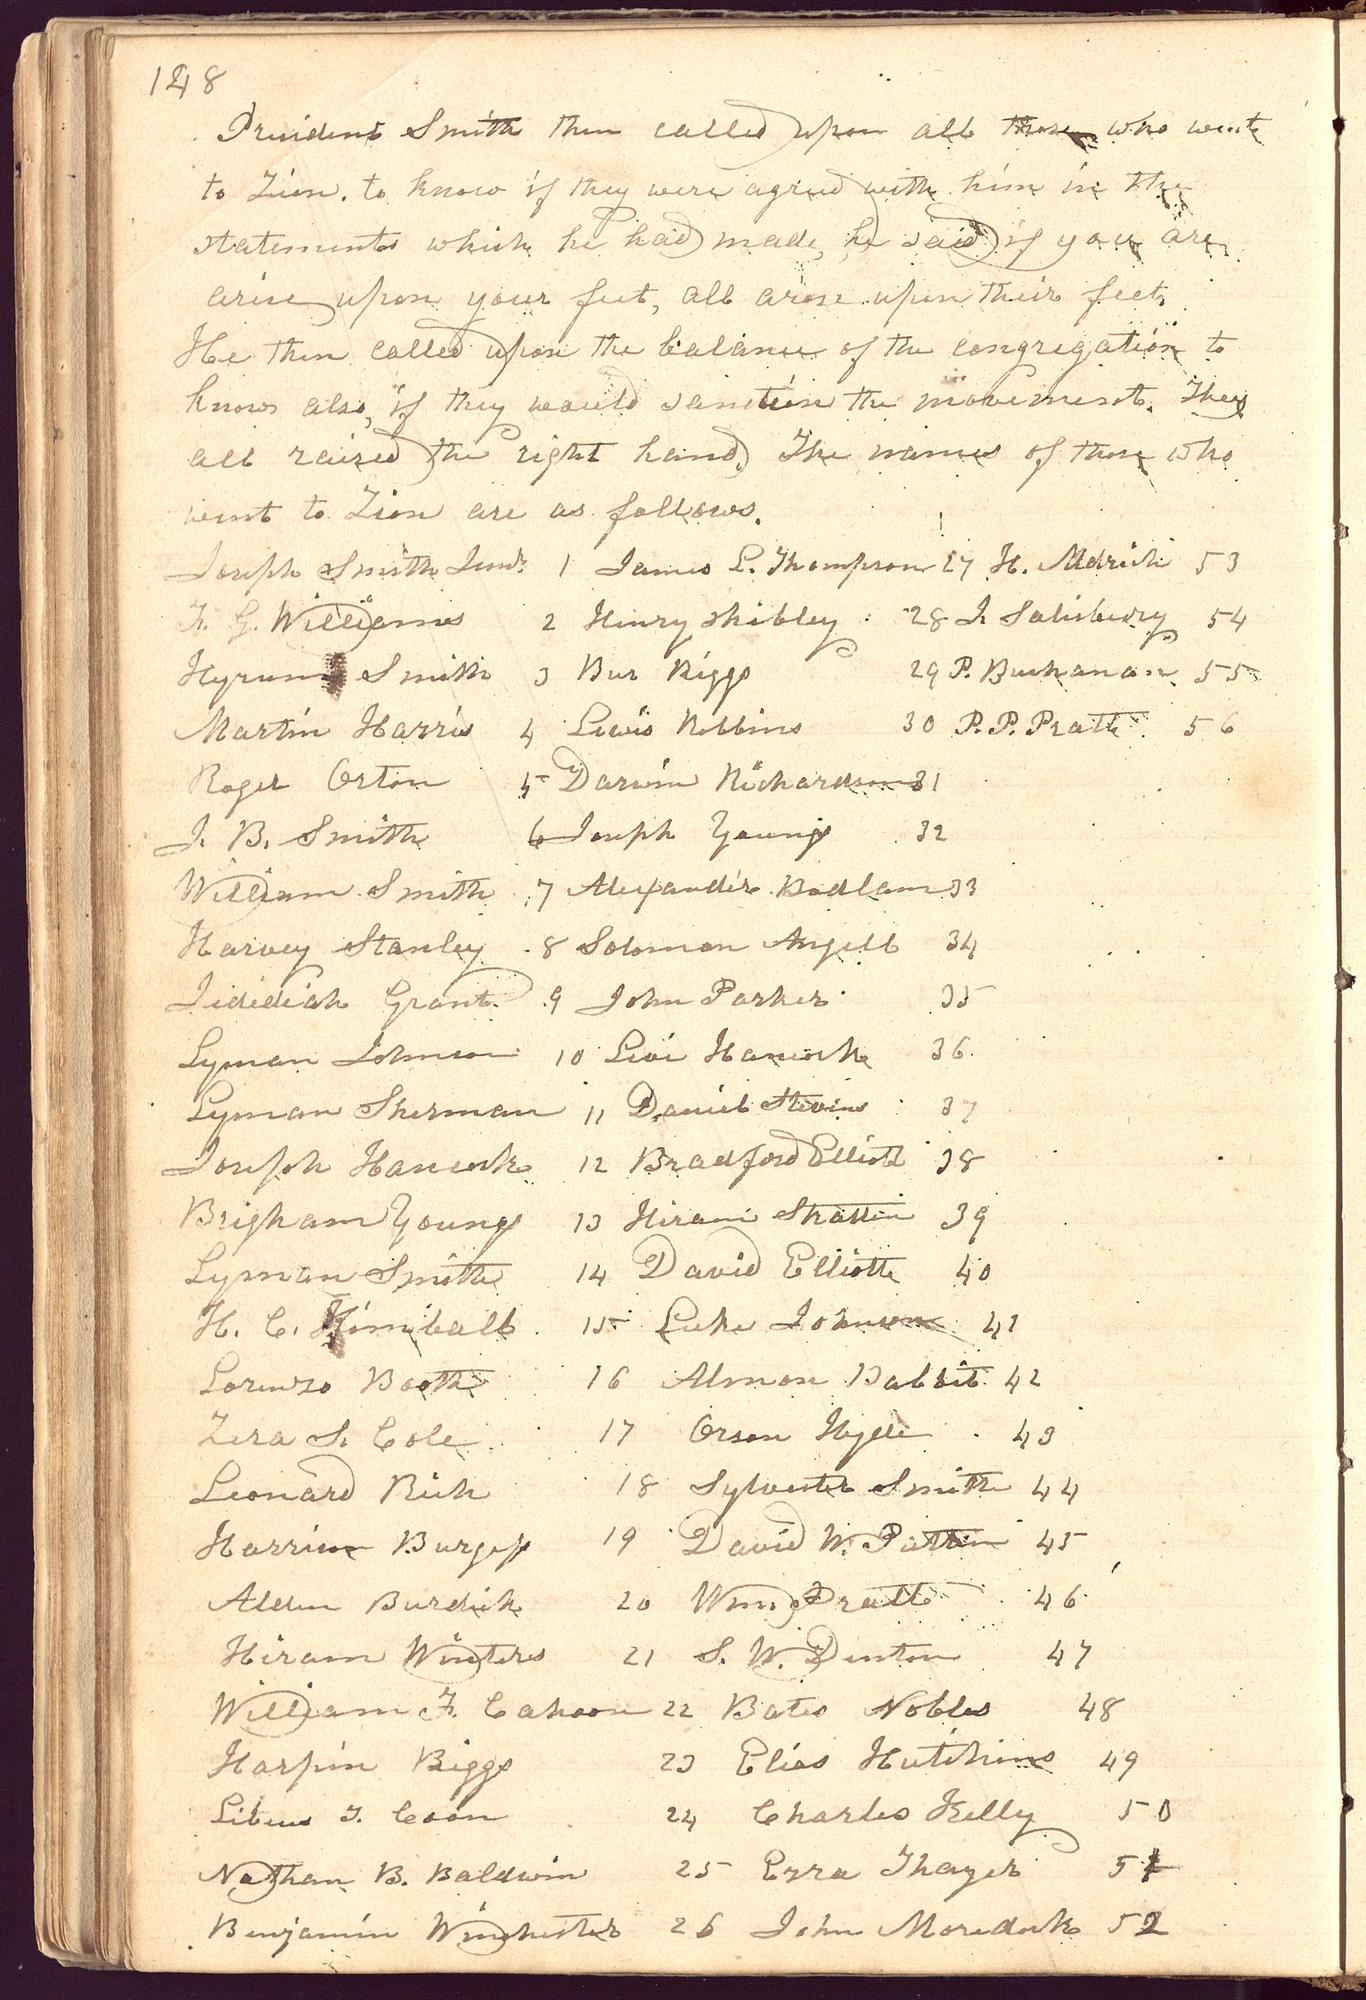 148
President Smith then called upon all those who went
to Zion. to know if they were agreed with him in the
statements which he had made, he said if you are
arise upon your feet, all arose upon their feet,
He then called upon the balance of the congregation to
know also, if they would sanction the movement. They
all raised the right hand. The names of those who
went to Zion are as follows.
Joseph Smith Junr. 1 James L. Thompson 27 H. Aldrich 53
F. G. Williams 2 Henry Shibley 28 J. Salisbury 54
Hyrum Smith 3 Bur Riggs 29 P. Buchanan 55
Martin Harris 4 Lewis Robbins 30 P. P. Pratt 56
Roger Orton 5 Darwin Richardson 31
J. B. Smith 6 Joseph Young 32
William Smith 7 Alexander Badlam 33
Harvey Stanley 8 Solomon Angell 34
Jedidiah Grant 9 John Parker 35
Lyman Johnson 10 Levi Hancock 36
Lyman Sherman 11 Daniel Stevins 37
Joseph Hancock 12 Bradford Elliott 38
Brigham Young 13 Hiram Strattin 39
Lyman Smith 14 David Elliott 40
H. C. Kimball 15 Luke Johnson 41
Lorenzo Booth 16 Almon Babbit 42
Zera S. Cole 17 Orson Hyde 43
Leonard Rich 18 Sylvester Smith 44
Harrison Burgess 19 David W. Pattin 45
Alden Burdick 20 Wm. Pratt 46
Hiram Winters 21 S. W. Denton 47
William F. Cahoon 22 Bates Nobles 48
Harpin Riggs 23 Elias Hutchins 49
Libeus T. Coon 24 Charles Kelly 50
Nathan B. Baldwin 25 Ezra Thayer 51
Benjamin Winchester 26 John Moredock 52